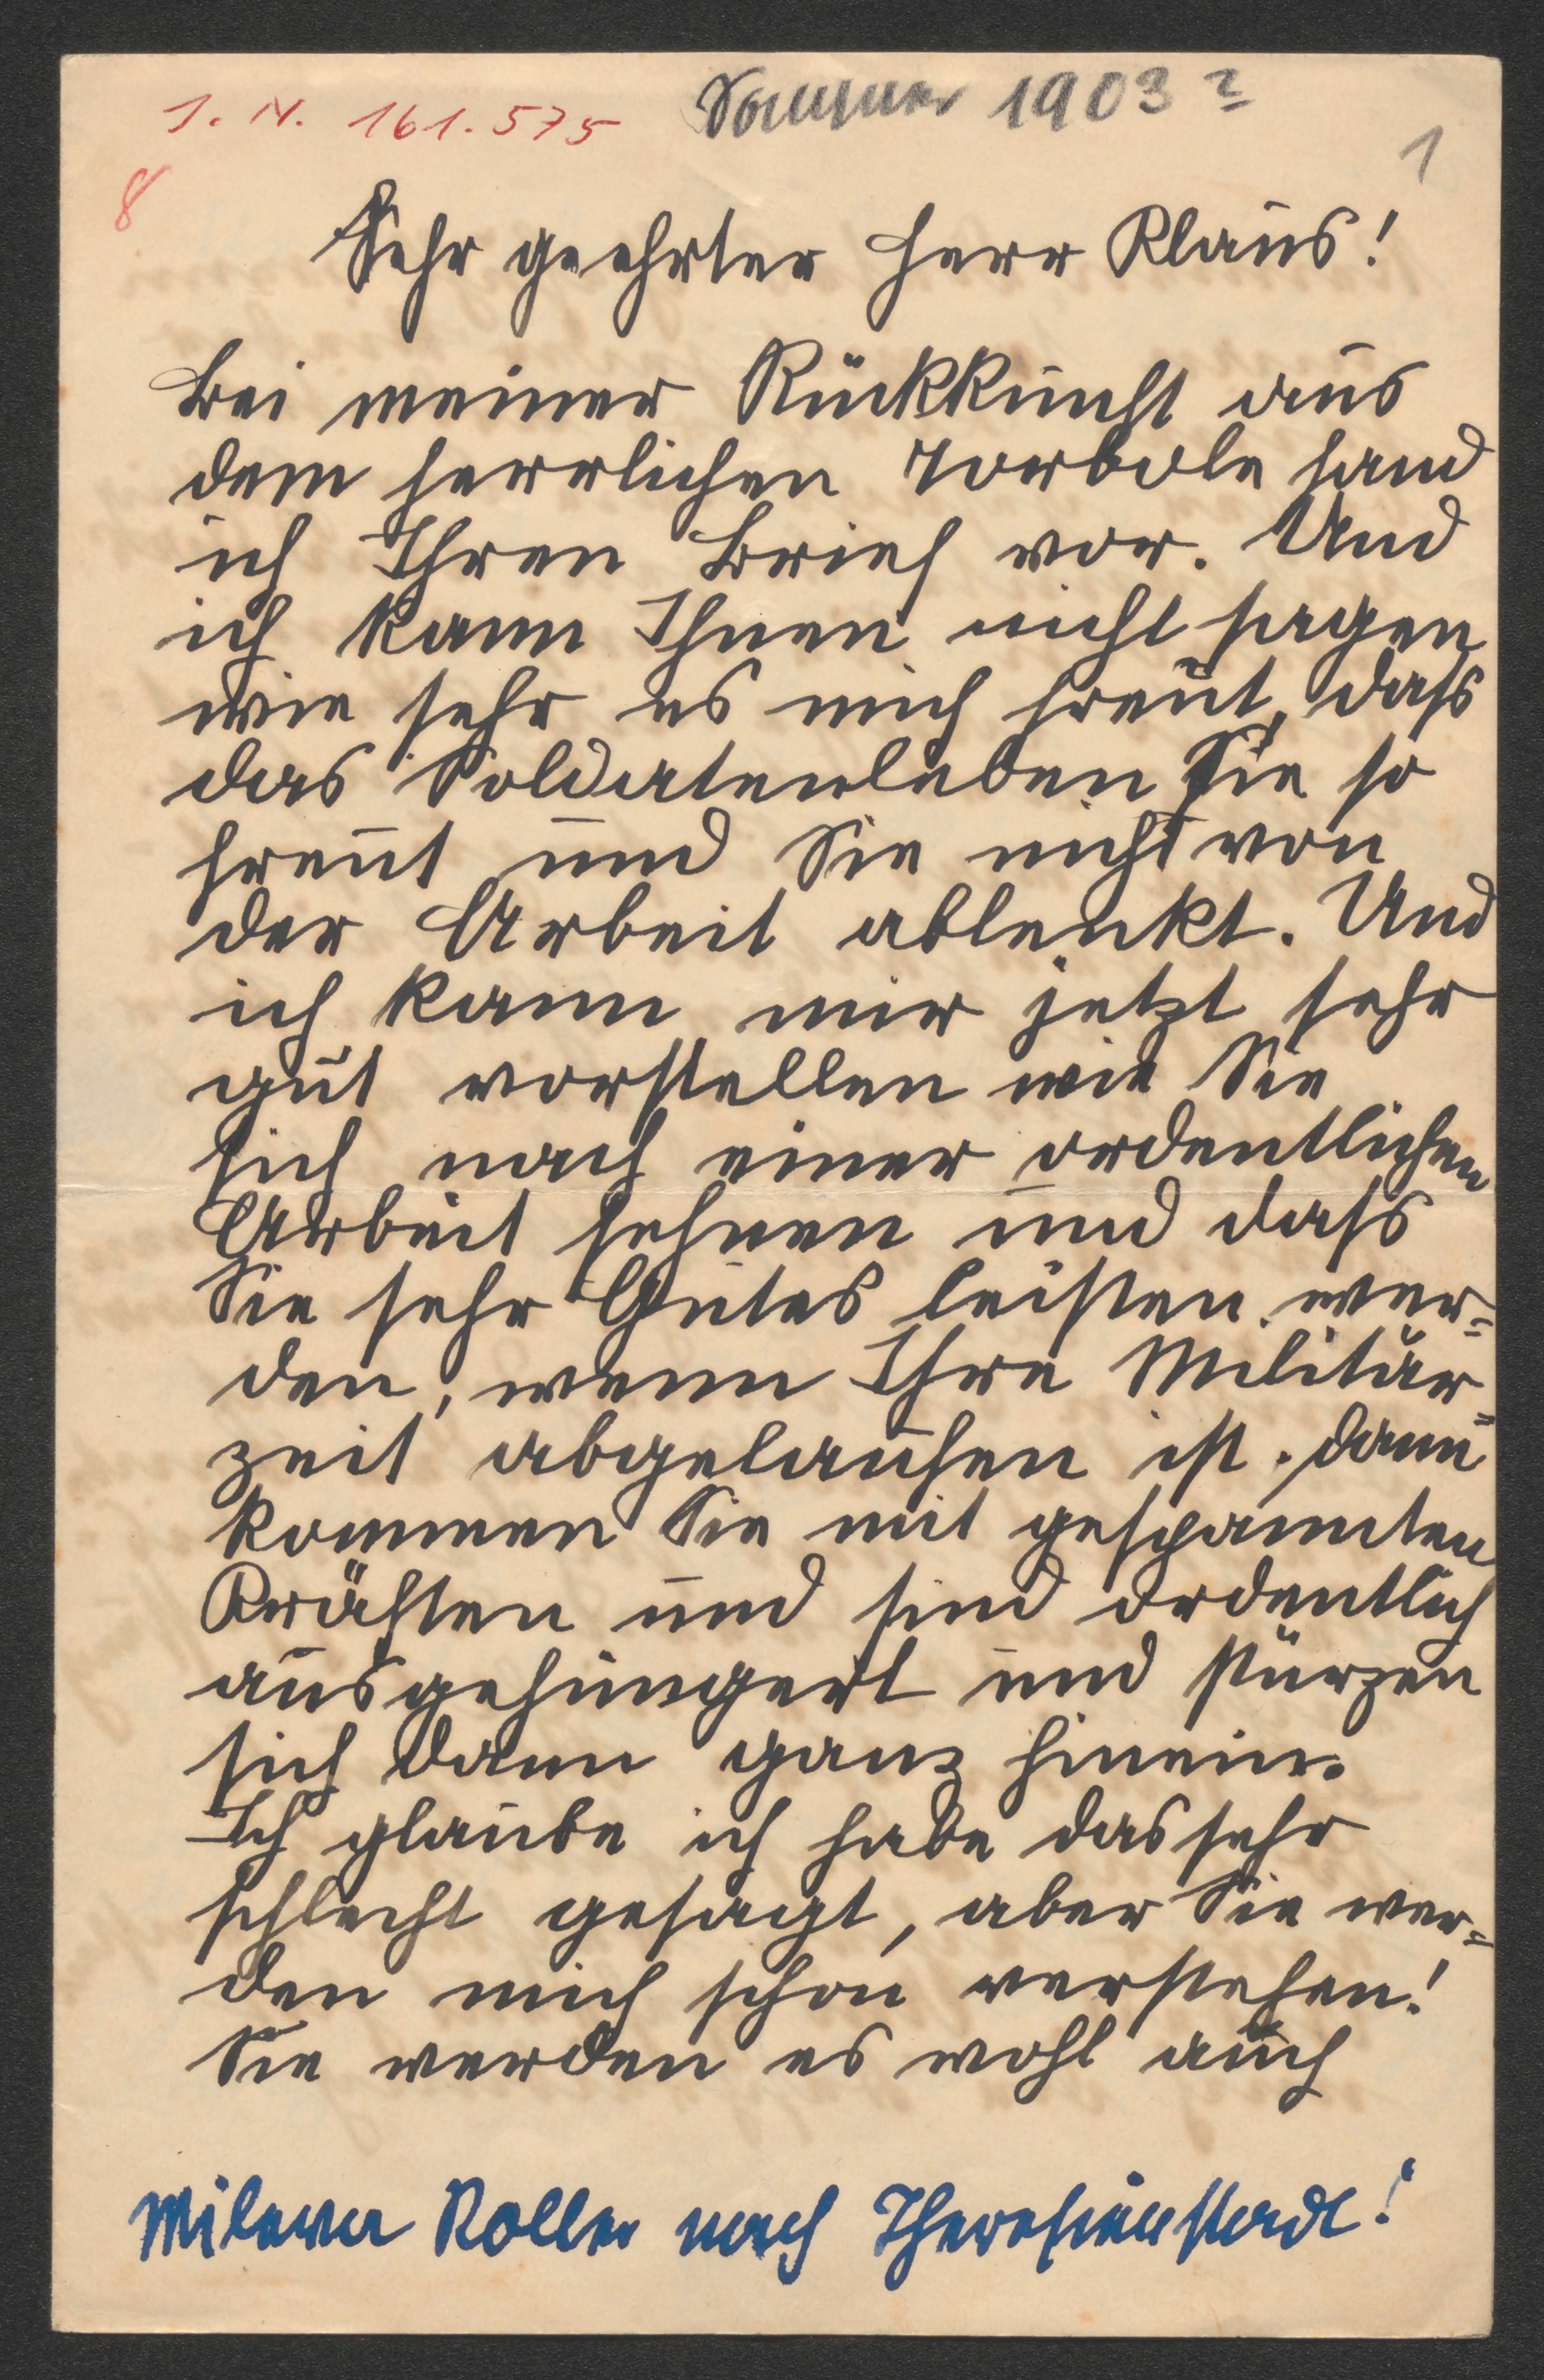 J. N. 161.575
Sommer 1903?
1
8
Sehr geehrter Herr Klaus!
Bei meiner Rückkunft aus
dem herrlichen Torbole fand
ich Ihren Brief vor. Und
ich kann Ihnen nicht sagen
wie sehr es mich freut, dass
das Soldatenleben Sie so
freut und Sie nicht von
der Arbeit ablenkt. Und
ich kann mir jetzt sehr
gut vorstellen wie Sie
sich nach einer ordentlichen
Arbeit sehnen und dass
Sie sehr Gutes leisten wer=
den, wenn Ihre Militär=
zeit abgelaufen ist. Dann
kommen Sie mit gespannten
Kräften und sind ordentlich
ausgehungert und stürzen
sich dann ganz hinein.
Ich glaube ich habe das sehr
schlecht gesagt, aber Sie wer=
den mich schon verstehen!
Sie werden es wohl auch
Milewa Roller nach Theresienstadt!